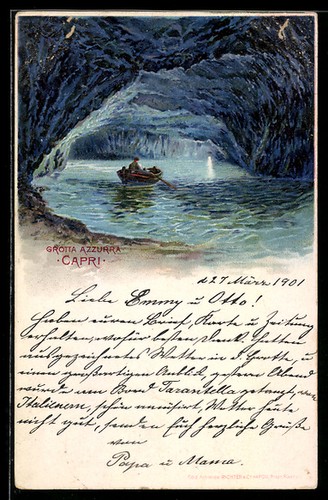 GROTTA AZZURRA
· CAPRI ·
d 27 März 1901
Liebe Emmy u Otto!
Haben euren Brief, Karte u Zeitung
erhalten, wofür besten Dank. Hatten
ausgezeichnetes Wetter in d. Grotte, u
einen großartigen Anblick, gestern Abend
wurde am Bord Tarantella getanzt, von
Italienern, schön musiziert, Wetter heute
nicht gut, senden Euch herzliche Grüße
von
Papa u Mama.
RICHTER &